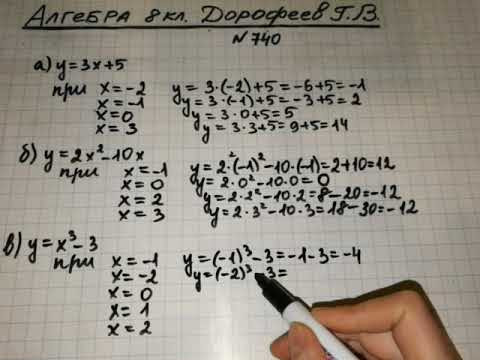 Алгебра 8 кл. Дорофеев Г.В.
№ 740
а) y = 3x + 5
при x = -2 y = 3·(-2)+5 = -6+5 = -1
x = -1 y = 3·(-1)+5 = -3+5 = 2
x = 0 y = 3·0+5 = 5
x = 3 y = 3·3+5 = 9+5 = 14
б) y = 2x² - 10x
при x = -1 y = 2·(-1)² - 10·(-1) = 2+10 = 12
x = 0 y = 2·0² - 10·0 = 0
x = 2 y = 2·2² - 10·2 = 8 - 20 = -12
x = 3 y = 2·3² - 10·3 = 18 - 30 = -12
в) y = x³ - 3
при x = -1 y = (-1)³ - 3 = -1 - 3 = -4
x = -2 y = (-2)³ - 3 =
x = 0
x = 1
x = 2